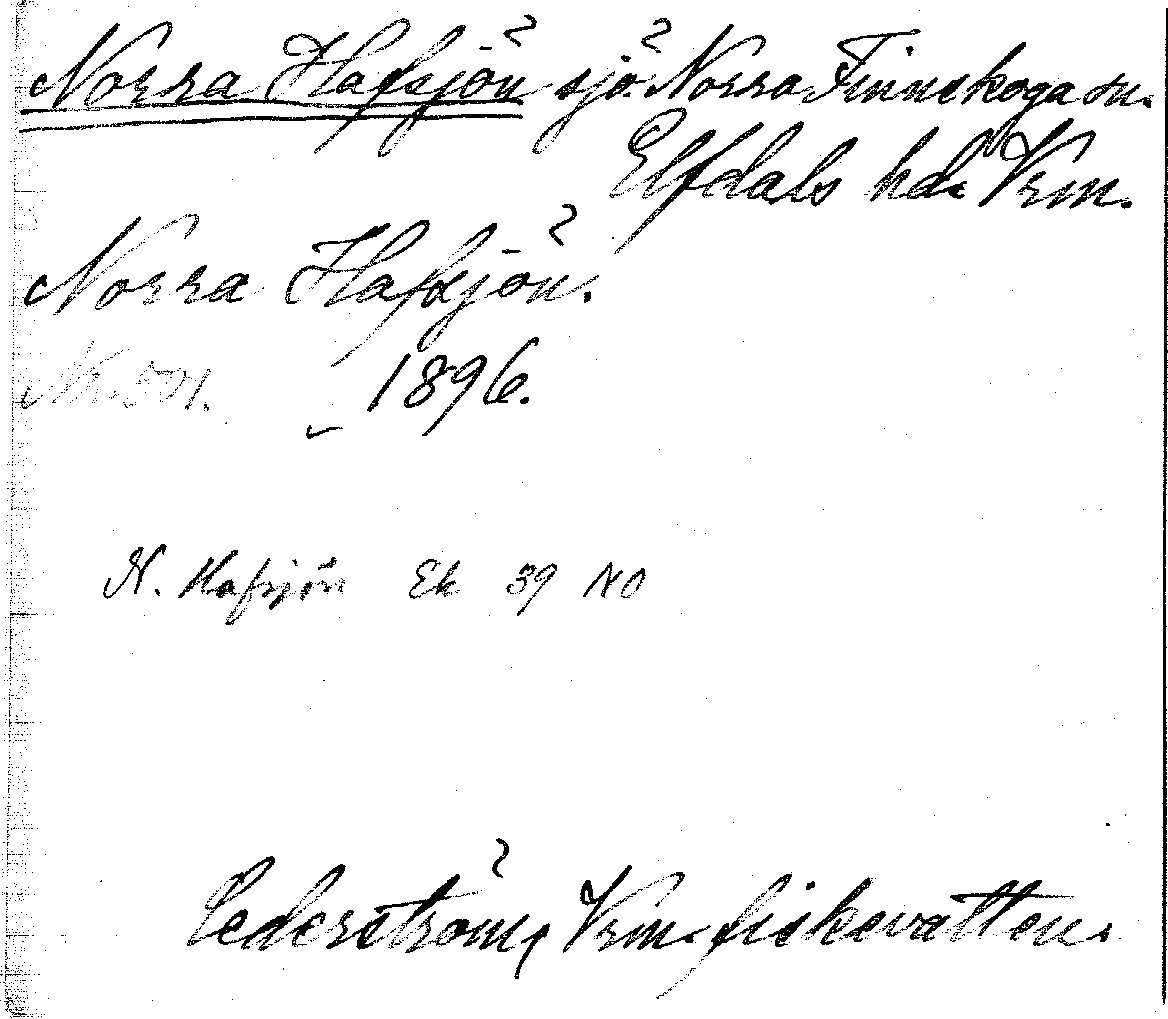 Norra Hafsjön sjö. Norra Finnskoga sn.
Elfdals hd. Vrm.
Norra Hafsjön.
Nr. 501.
1896.
N. Hafsjön Ek 39 NO
Cederström, Vrm. fiskevatten.